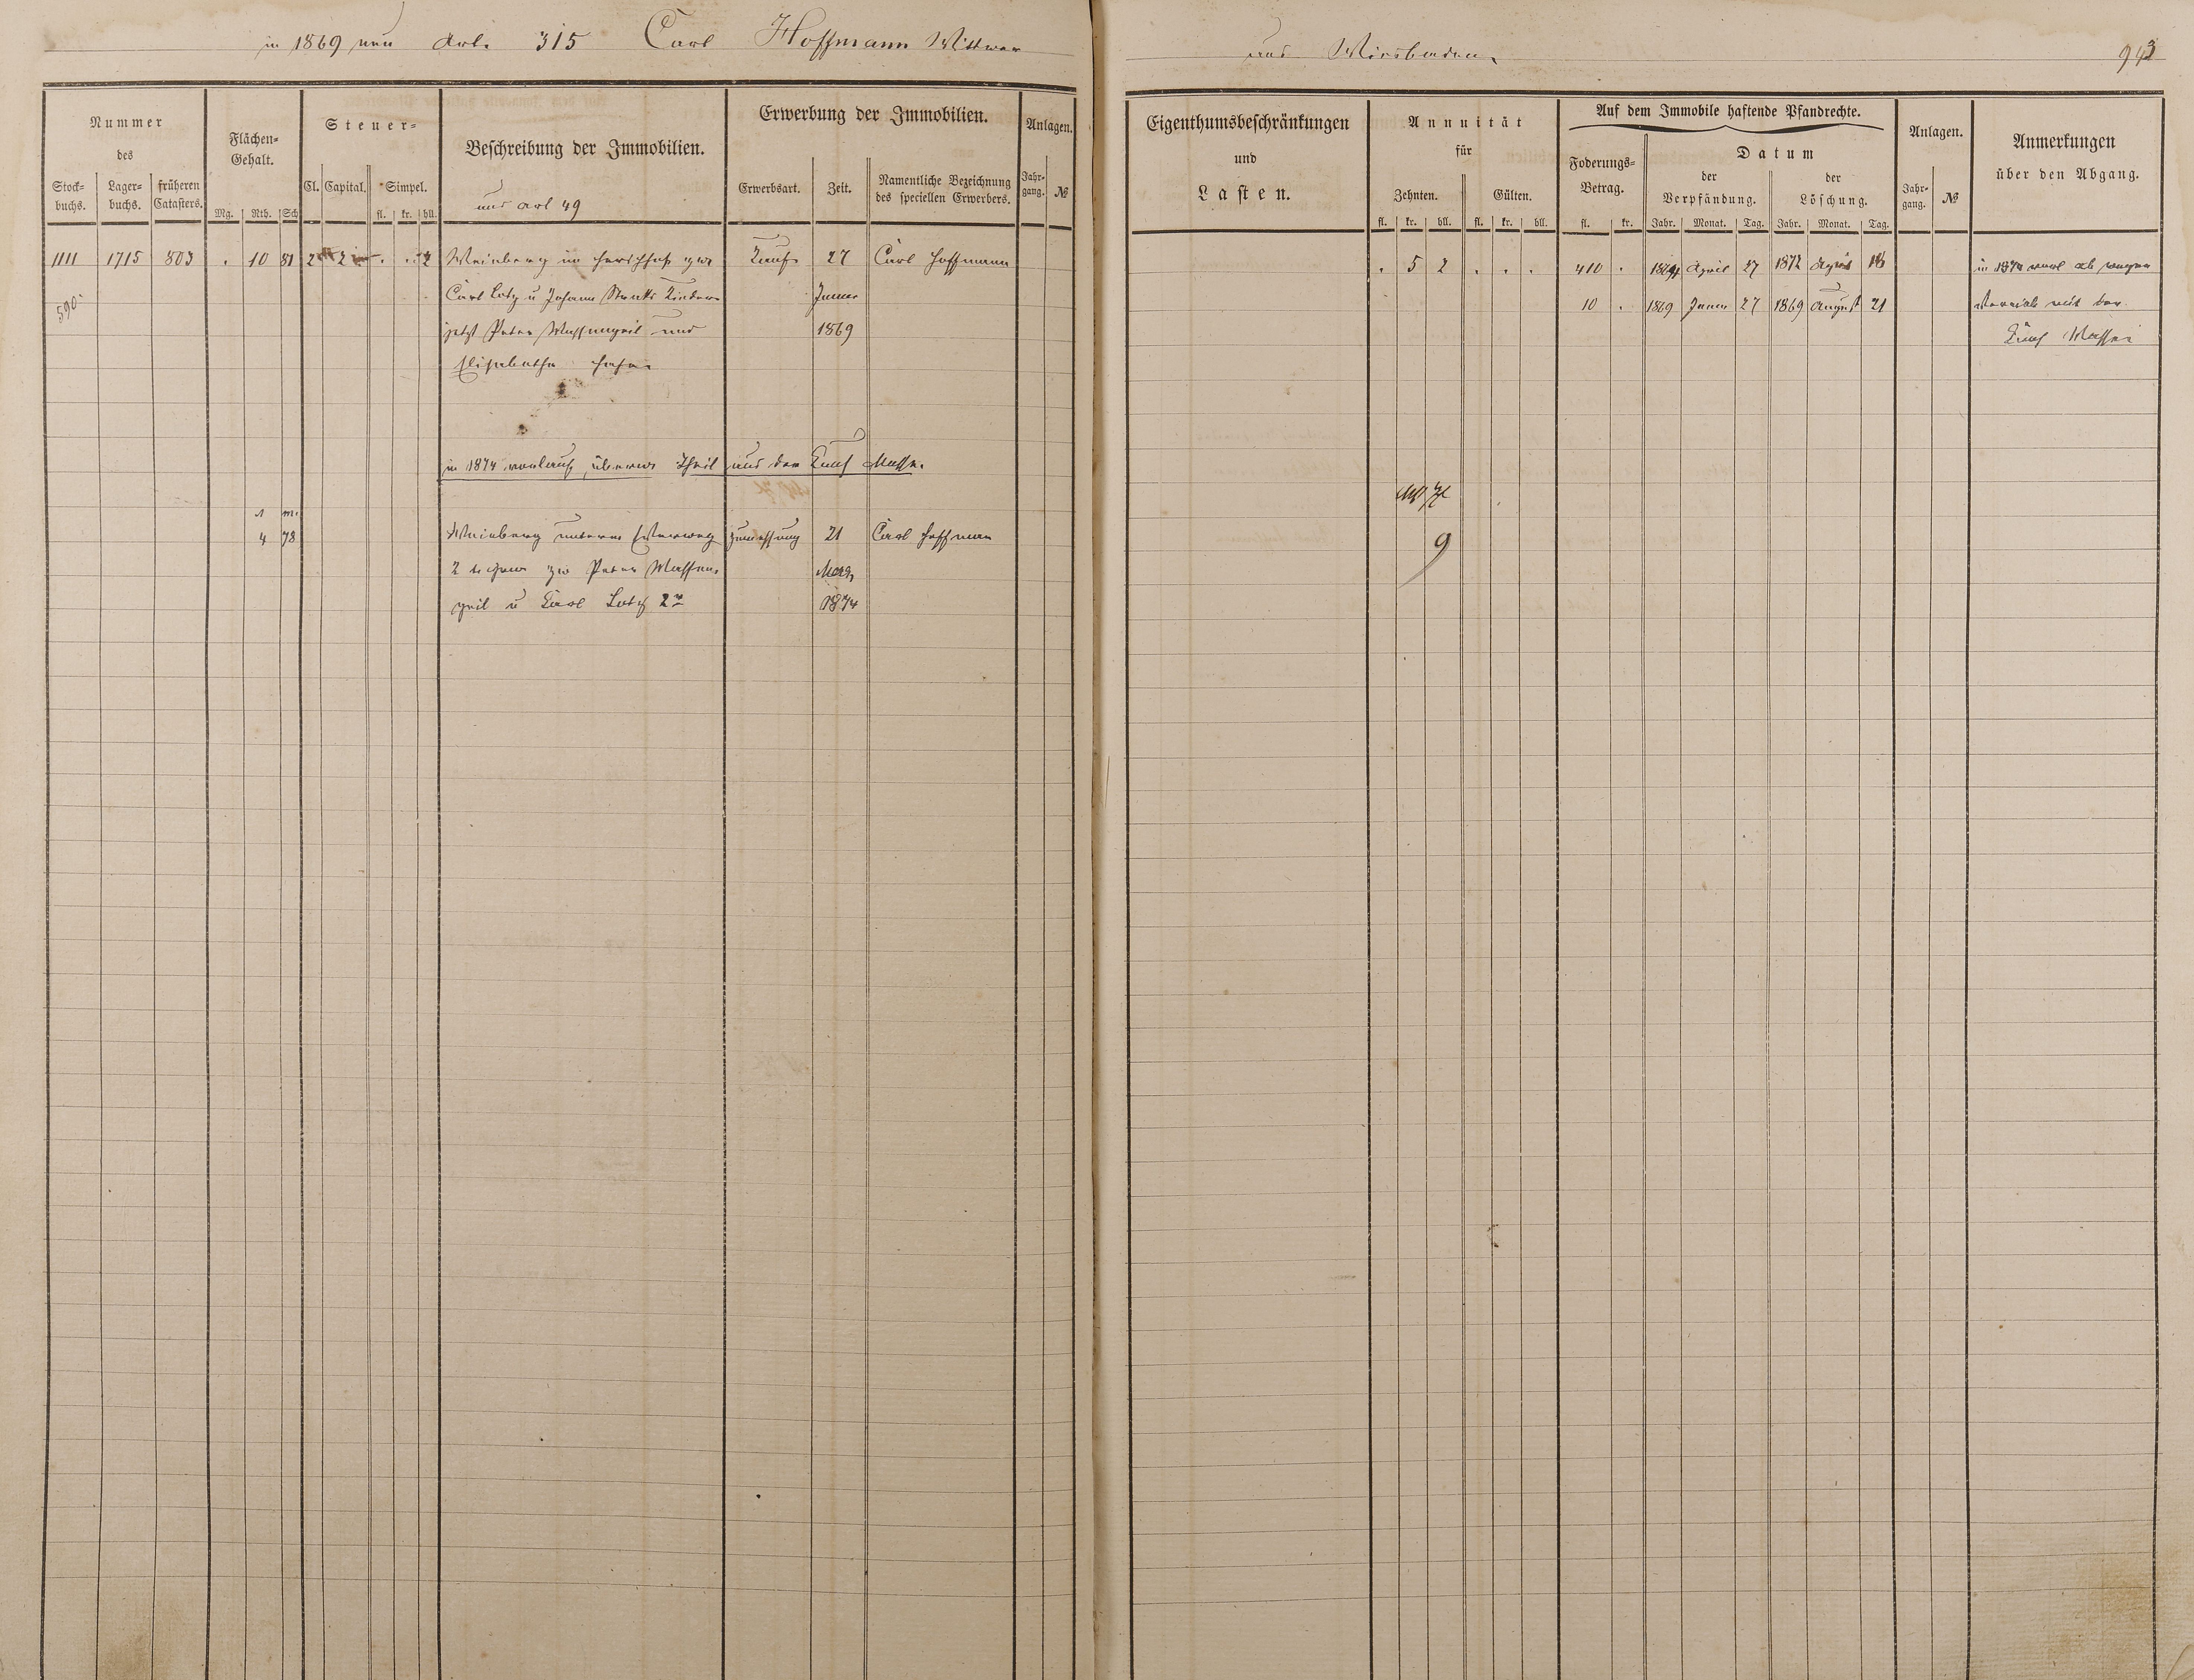 in 1869 neu Art. 315 Carl Hoffmann Wittwer
aus Wiesbaden
943
Nummer
des
Stock-
buchs.
Lager-
buchs.
früheren
Catasters.
Flächen-
Gehalt.
Mg. Rth. Sch
Steuer-
Cl. Capital. Simpel.
fl. kr. hll.
Beschreibung der Immobilien.
aus Art 49
Erwerbung der Immobilien.
Erwerbsart. Zeit.
Namentliche Bezeichnung
des speciellen Erwerbers.
Anlagen.
Jahr-
gang. №
Eigenthumsbeschränkungen
und
Lasten.
Annuität
für
Zehnten. Gülten.
fl. kr. hll. fl. kr. hll.
Auf dem Immobile haftende Pfandrechte.
Foderungs-
Betrag.
fl. kr.
Datum
der
Verpfändung.
der
Löschung.
Jahr. Monat. Tag. Jahr. Monat. Tag.
Anlagen.
Jahr-
gang. №
Anmerkungen
über den Abgang.
1111 1715 803 . 10 81 2 2 . . 2 Weinberg im zw Kauf 27 Carl Hoffmann
. 5 2 . . . 410 . April 27 1872 April 18 in 1874 ab wegen
590
Carl Lotz u Johann Kinder Januar
10 . 1869 Januar 27 1869 August 21 mit der
jetzt Peter und 1869
Kauf Masse
Elisabetha
in 1874 Theil aus der Kauf Masse.
4 78 Weinberg unterm 21 Carl Hoffmann
9
2 zw Peter März
u Carl Lotz 2r 1874